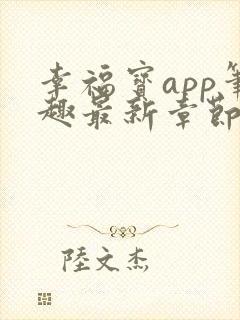 幸福寶app筆
趣最新章節
陸文杰